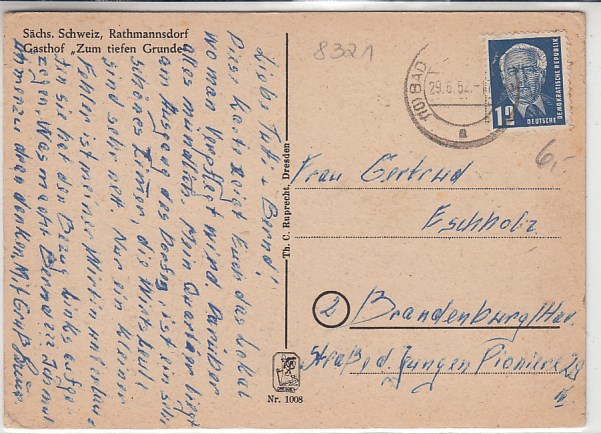 Sächs. Schweiz, Rathmannsdorf
Gasthof „Zum tiefen Grunde"
8321
(10) BAD
29.6.52.-
a
12
DEUTSCHE
DEMOKRATISCHE REPUBLIK
6,-
Liebe Tutti u. Bernd!
Diese Karte zeigt Euch das Lokal
wo man verpflegt wird. Darüber
alles mündlich. Mein Quartier liegt
am Ausgang des Dorfes, ist ein sehr
schönes Zimmer, die Wirtsleute
sind sehr nett. Nur ein kleiner
Fehler ist meiner Wirtin unterlau-
fen sie hat den Bezug links aufge-
zogen. Was macht Bernd? Ich muß
immerzu dran denken. Mit Gruß
Th. C. Ruprecht, Dresden
Frau Gertrud
Eschholz
2 Brandenburg/Hav.
Straße d. Jungen Pioniere 29
IV
Nr. 1008